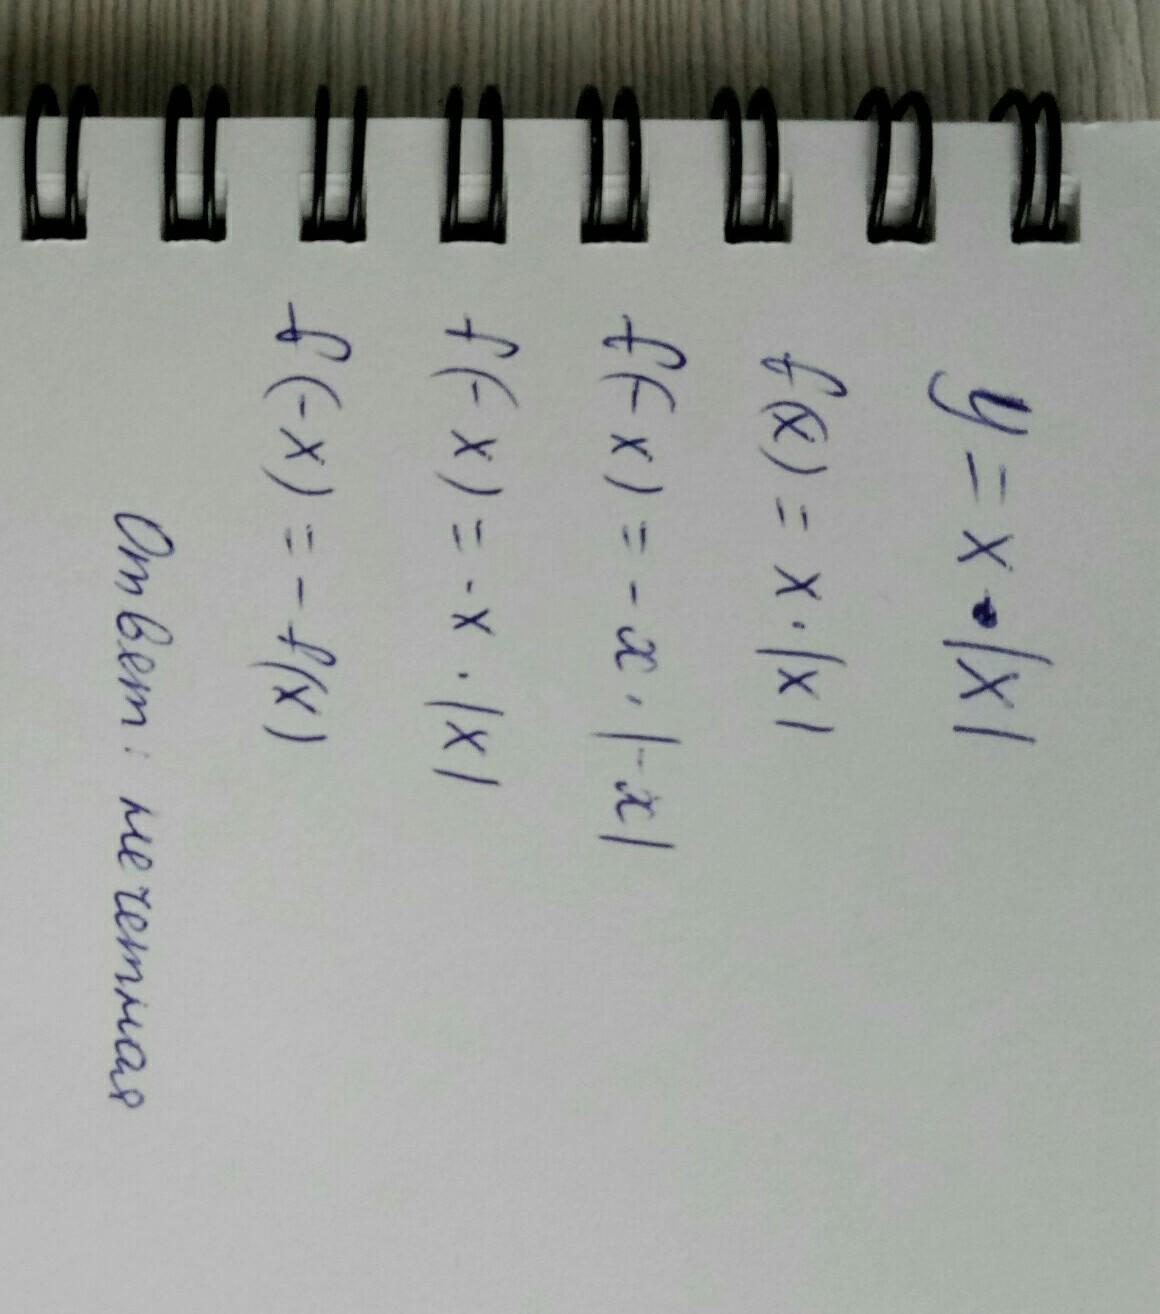 y = x • |x|
f(x) = x · |x|
f(-x) = - x · |-x|
f(-x) = -x · |x|
f(-x) = - f(x)
Ответ: нечетная